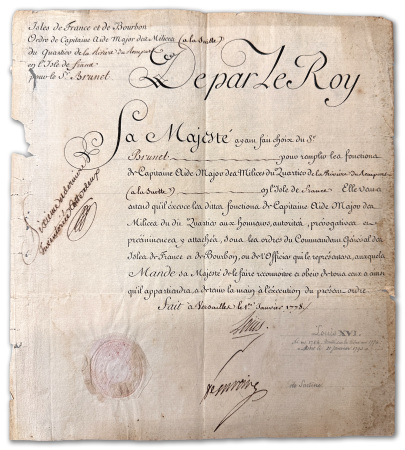 Isles de France et de Bourbon
Ordre de Capitaine Aide Major des Milices (a la Suitte)
du Quartier de la Rivière du Rempart
en l'Isle de france
pour le Sr. Brunet
De par Le Roy
Sa Majesté ayant fait choix du Sr.
Brunet pour remplir les fonctions
de Capitaine Aide Major des Milices du Quartier de la Rivière du Rempart
(a la Suitte) en l'Isle de France Elle veut
autant qu'il exerce les dittes fonctions de Capitaine Aide Major des
Milices du du Quartier aux honneurs, autorité, prérogatives et
prééminences y attachés, sous les ordres du Commandant Général des
Isles de France et de Bourbon, ou de l'Officier qui le représentera, auxquels
Mande sa Majesté de le faire reconnoitre et obéir de tous ceux a ainsi
qu'il appartiendra, & de tenir la main à l'exécution du présent ordre
Fait à Versailles le 1er. Janvier 1778.
Louis
Louis XVI.
de Sartine